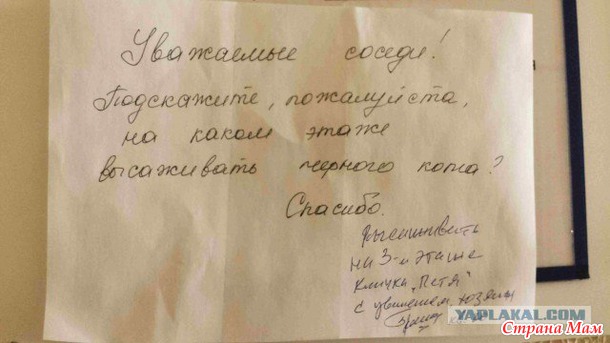 Уважаемые соседи!
Подскажите, пожалуйста,
на каком этаже
высаживать черного кота?
Спасибо.
Высаживать
на 3-м этаже
кличка "Петя"
с уважением, хозяин
YAPLAKAL.COM
Страна Мам